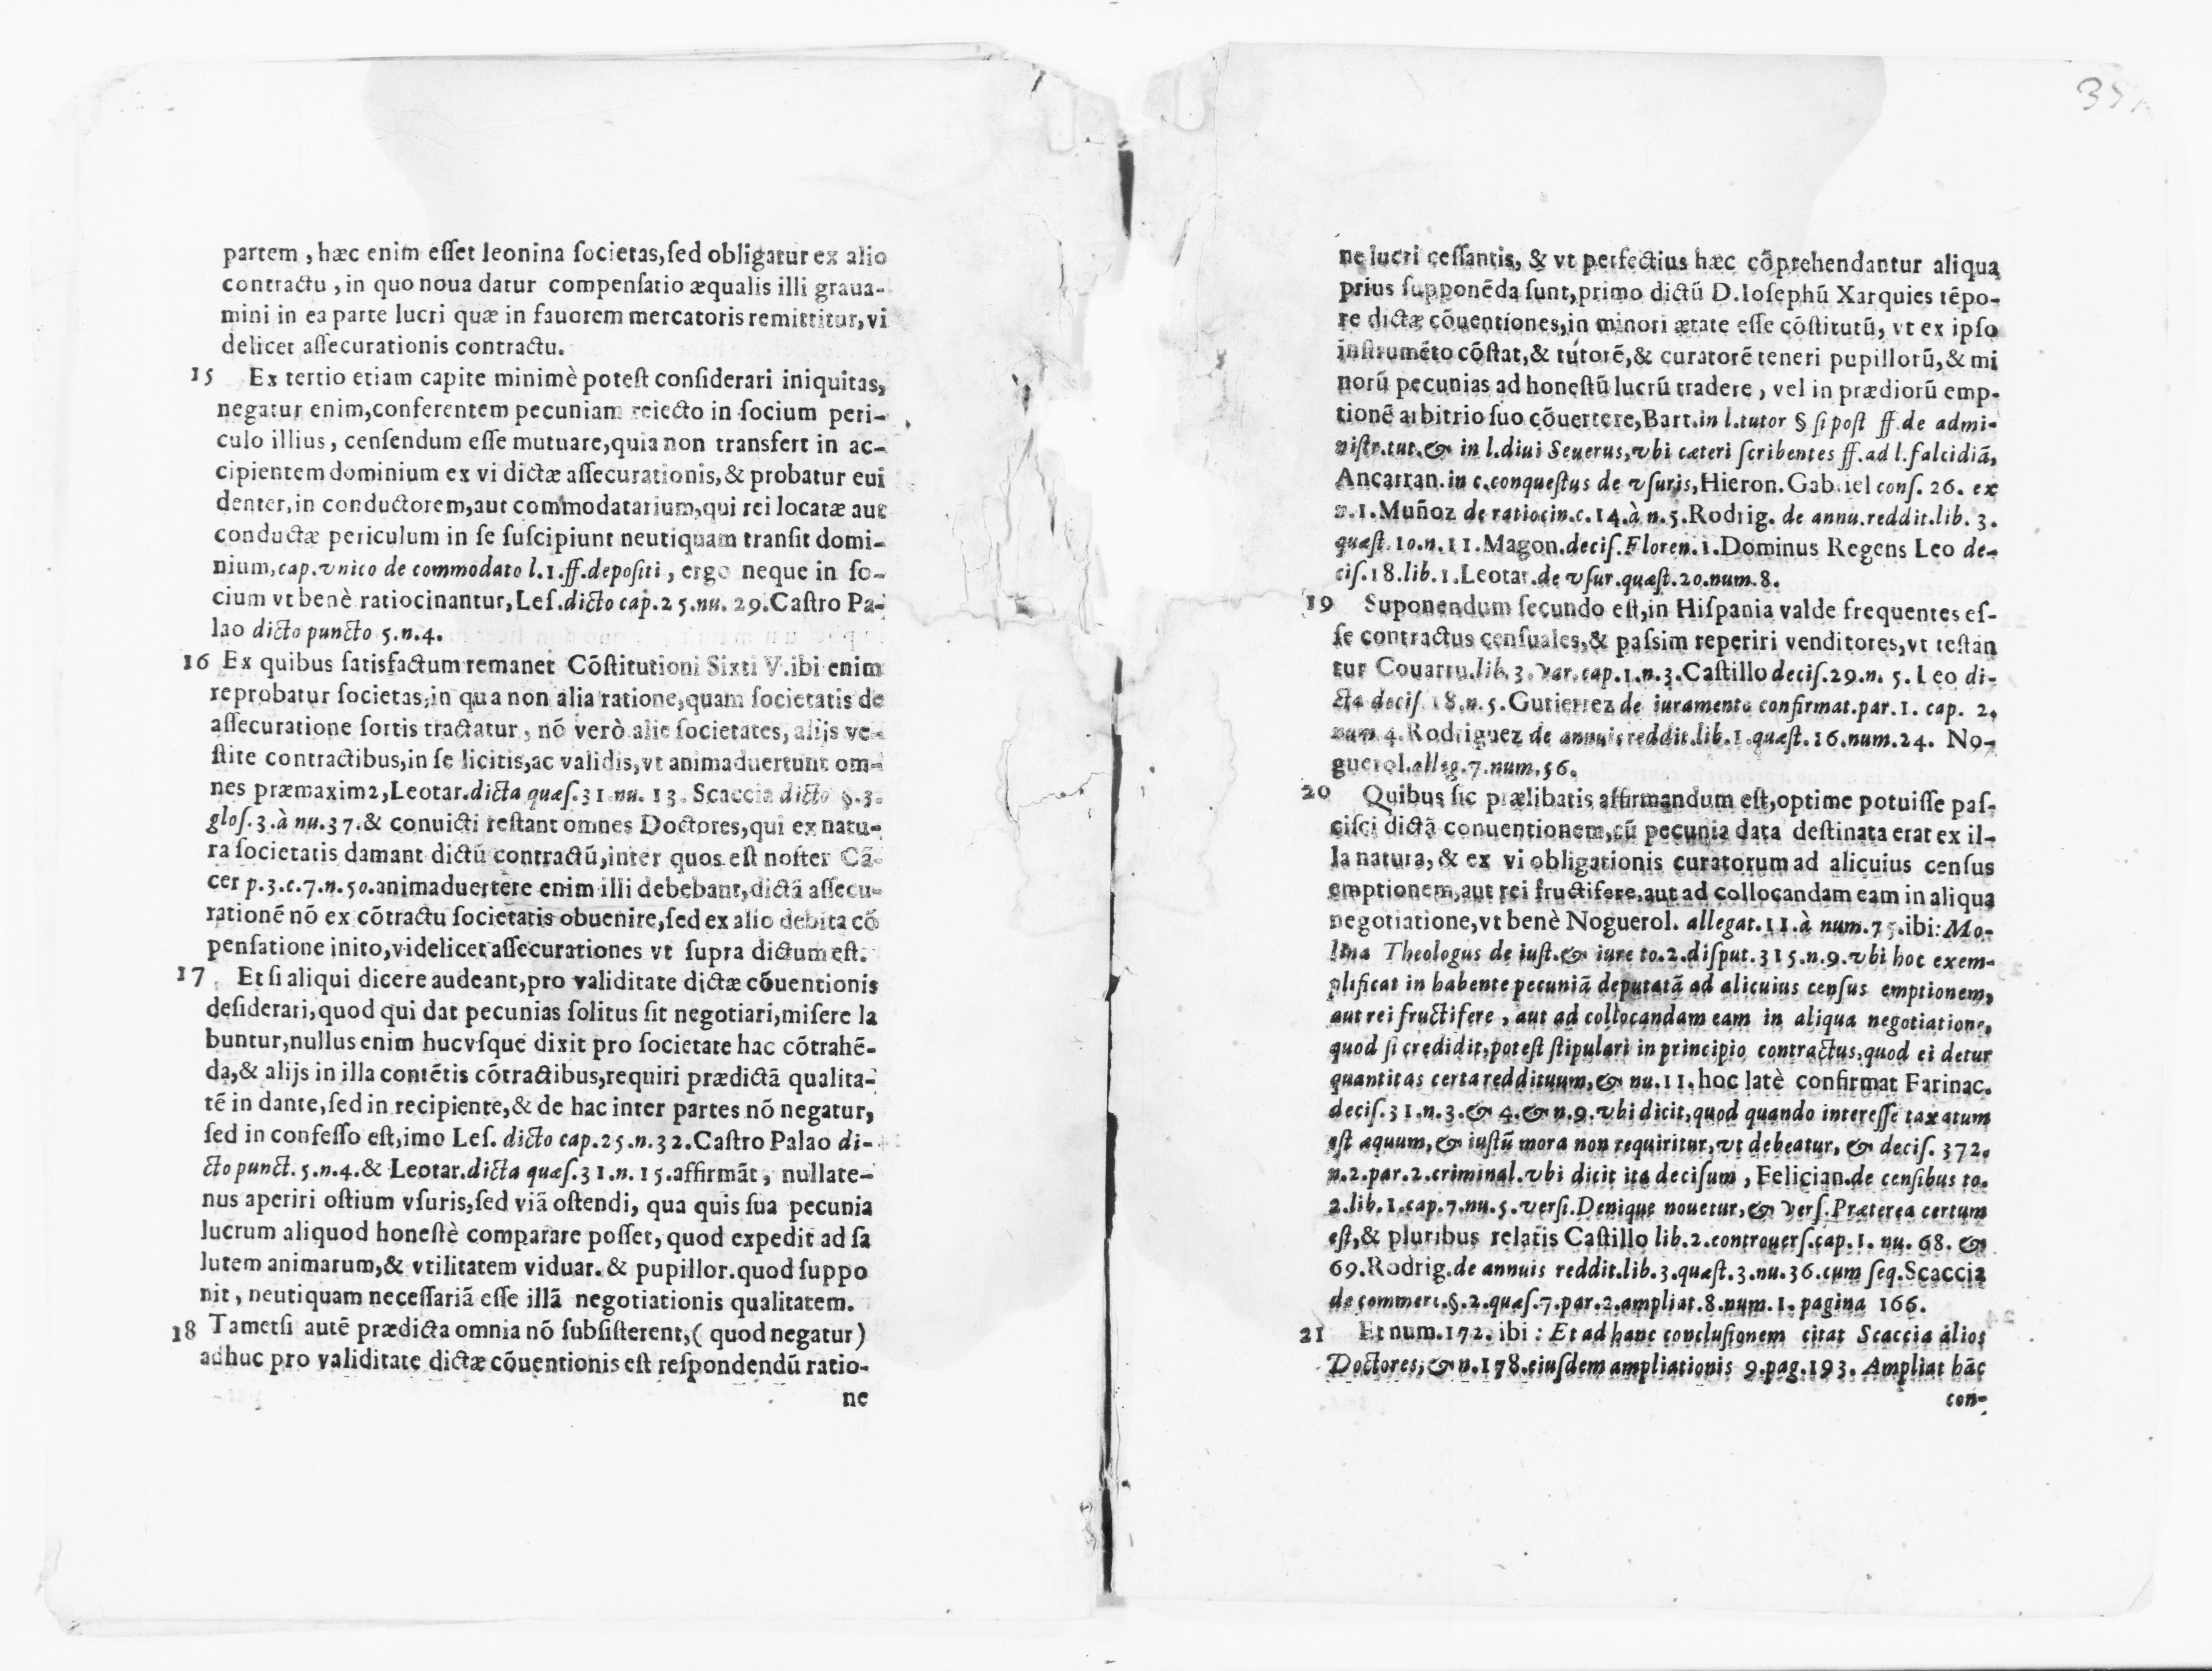 partem , hæc enim eſſet leonina ſocietas,ſed obligatur ex alio
contractu , in quo noua datur compenſatio æqualis illi graua-
mini in ea parte lucri quæ in fauorem mercatoris remittitur,vi
delicet aſſecurationis contractu.
15 Ex tertio etiam capite minimè poteſt conſiderari iniquitas,
negatur enim,conferentem pecuniam reiecto in ſocium peri-
culo illius , cenſendum eſſe mutuare,quia non transfert in ac-
cipientem dominium ex vi dictæ aſſecurationis,& probatur eui
denter,in conductorem,aut commodatarium,qui rei locatæ aut
conductæ periculum in ſe ſuſcipiunt neutiquam tranſit domi-
nium,cap.vnico de commodato l.1.ff.depoſiti , ergo neque in ſo-
cium vt benè ratiocinantur,Leſ.dicto cap.25.nu. 29.Caſtro Pa-
lao dicto puncto 5.n.4.
16 Ex quibus ſatisfactum remanet Cõſtitutioni Sixti V.ibi enim
reprobatur ſocietas,in qua non alia ratione,quam ſocietatis de
aſſecuratione ſortis tractatur, nõ verò alie ſocietates, alijs ve-
ſtite contractibus,in ſe licitis,ac validis,vt animaduertunt om-
nes præmaximè,Leotar.dicta quæſ.31.nu. 13. Scaccia dicto §.3.
gloſ.3.à nu.37.& conuicti reſtant omnes Doctores,qui ex natu-
ra ſocietatis damant dictũ contractũ,inter quos eſt noſter Cã-
cer p.3.c.7.n.50.animaduertere enim illi debebant,dictã aſſecu-
rationẽ nõ ex cõtractu ſocietatis obuenire,ſed ex alio debita cõ
penſatione inito,videlicet aſſecurationes vt ſupra dictum eſt.
17 Et ſi aliqui dicere audeant,pro validitate dictæ cõuentionis
deſiderari,quod qui dat pecunias ſolitus ſit negotiari,miſere la
buntur,nullus enim hucvſque dixit pro ſocietate hac cõtrahẽ-
da,& alijs in illa contẽtis cõtractibus,requiri prædictã qualita-
tẽ in dante,ſed in recipiente,& de hac inter partes nõ negatur,
ſed in confeſſo eſt,imo Leſ. dicto cap.25.n.32.Caſtro Palao di-
cto punct. 5.n.4.& Leotar.dicta quæſ.31.n.15.affirmãt, nullate-
nus aperiri oſtium vſuris,ſed viã oſtendi, qua quis ſua pecunia
lucrum aliquod honeſtè comparare poſſet, quod expedit ad ſa
lutem animarum,& vtilitatem viduar.& pupillor.quod ſuppo
nit , neutiquam neceſſariã eſſe illã negotiationis qualitatem.
18 Tametſi autẽ prædicta omnia nõ ſubſiſterent,( quod negatur)
adhuc pro validitate dictæ cõuentionis eſt reſpondendũ ratio-
ne
ne lucri ceſſantis, & vt perfectius hæc cõprehendantur aliqua
prius ſupponẽda ſunt,primo dictũ D.Ioſephũ Xarquies tẽpo-
re dictæ cõuentiones,in minori ætate eſſe cõſtitutũ, vt ex ipſo
inſtrumẽto cõſtat,& tutorẽ,& curatorẽ teneri pupillorũ,& mi
norũ pecunias ad honeſtũ lucrũ tradere , vel in prædiorũ emp-
tionẽ arbitrio ſuo cõuertere,Bart.in l.tutor § ſi poſt ff.de admi-
niſtr.tut.& in l.diui Seuerus,vbi cæteri ſcribentes ff.ad l.falcidiã,
Ancarran.in c.conqueſtus de vſuris,Hieron.Gabriel conſ. 26. ex
n.1.Muñoz de ratiocin.c.14.à n.5.Rodrig. de annu.reddit.lib. 3.
quæſt.10.n.11.Magon.deciſ.Floren.1.Dominus Regens Leo de-
ciſ.18.lib.1.Leotar.de vſur.quæſt.20.num.8.
19 Suponendum ſecundo eſt,in Hiſpania valde frequentes eſ-
ſe contractus cenſuales,& paſsim reperiri venditores,vt teſtan
tur Couarru.lib. 3. var.cap.1.n.3.Caſtillo deciſ.29.n. 5. Leo di-
cta deciſ. 18.n.5.Gutierrez de iuramento confirmat.par.1. cap. 2.
num 4.Rodriguez de annuis reddit.lib.1.quæſt.16.num.24. No-
guerol.alleg.7.num.56.
20 Quibus ſic prælibatis affirmandum eſt,optime potuiſſe paſ-
ciſci dictã conuentionem,cũ pecunia data deſtinata erat ex il-
la natura,& ex vi obligationis curatorum ad alicuius cenſus
emptionem,aut rei fructifere,aut ad collocandam eam in aliqua
negotiatione,vt benè Noguerol. allegat.11.à num.75.ibi:Mo-
lina Theologus de iuſt.& iure to.2.diſput.315.n.9.vbi hoc exem-
plificat in habente pecuniã deputatã ad alicuius cenſus emptionem,
aut rei fructifere , aut ad collocandam eam in aliqua negotiatione,
quod ſi credidit,poteſt ſtipulari in principio contractus,quod ei detur
quantitas certa reddituum,& nu.11.hoc latè confirmat Farinac.
deciſ.31.n.3.& 4.& n.9.vbi dicit,quod quando intereſſe taxatum
eſt æquum,& iuſtũ mora non requiritur,vt debeatur, & deciſ. 372.
n.2.par.2.criminal.vbi dicit ita deciſum , Felician.de cenſibus to.
2.lib.1.cap.7.nu.5.verſi.Denique nouetur,& verſ.Præterea certum
eſt,& pluribus relatis Caſtillo lib.2.controuerſ.cap.1. nu. 68. &
69.Rodrig.de annuis reddit.lib.3.quæſt.3.nu.36.cum ſeq.Scaccia
de commerc.§.2.quæſ.7.par.2.ampliat.8.num.1.pagina 166.
21 Et num.172. ibi : Et ad hanc concluſionem citat Scaccia alios
Doctores,& n.178.eiuſdem ampliationis 9.pag.193. Ampliat hãc
con-